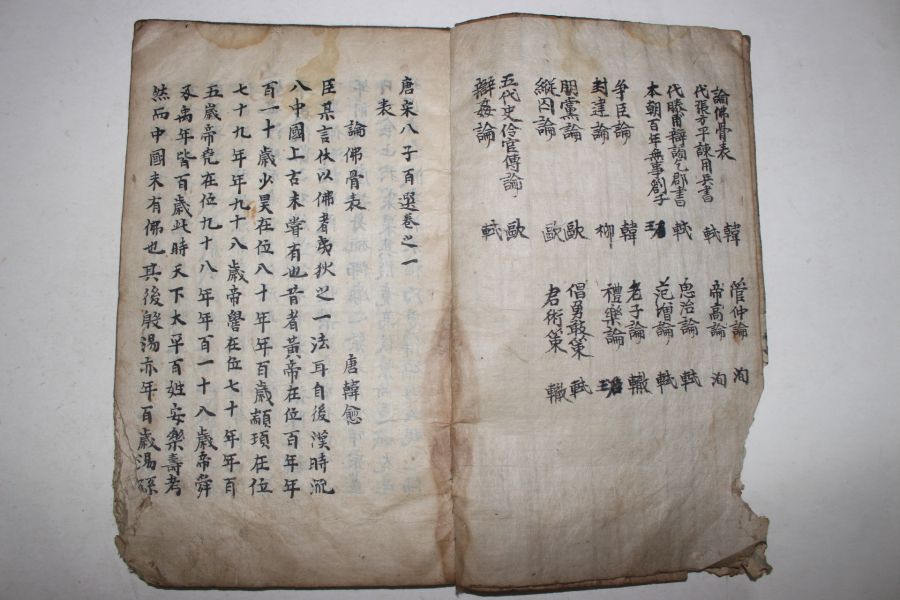 論佛骨表 韓
代張方平諫用兵書 軾
代滕甫辯謗乞郡書 軾
本朝百年無事劄子
爭臣論 韓
封建論 柳
朋黨論 歐
縱囚論 歐
五代史伶官傳論 歐
辯姦論 軾
管仲論 洵
帝高論 洵
思治論 軾
范增論 軾
老子論 轍
禮樂論
倡勇敢策 軾
君術策 轍
唐宋八子百選卷之一
表
論佛骨表 唐韓愈
臣某言伏以佛者夷狄之一法耳自後漢時流
入中國上古未嘗有也昔者黃帝在位百年年
百一十歲少昊在位八十年年百歲顓頊在位
七十九年年九十八歲帝嚳在位七十年年百
五歲帝堯在位九十八年年百一十八歲帝舜
及禹年皆百歲此時天下太平百姓安樂壽考
然而中國未有佛也其後殷湯亦年百歲湯孫